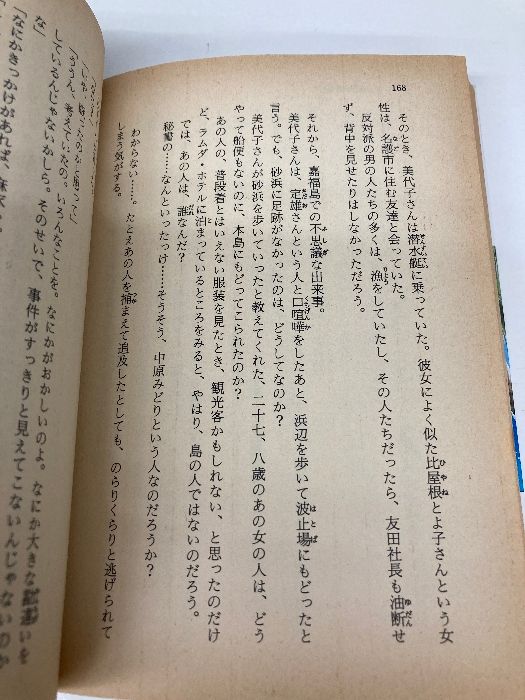 168
そのとき、美代子さんは潜水艇に乗っていた。彼女によく似た比屋根とよ子さんという女
性は、名護市に住む友達と会っていた。
反対派の男の人たちの多くは、漁をしていたし、その人たちだったら、友田社長も油断せ
ず、背中を見せたりはしなかっただろう。
それから、嘉福島での不思議な出来事。
美代子さんは、定雄さんという人と口喧嘩をしたあと、浜辺を歩いて波止場にもどったと
言う。でも、砂浜に足跡がなかったのは、どうしてなのか？
美代子さんが砂浜を歩いていったと教えてくれた、二十七、八歳のあの女の人は、どう
やって船便もないのに、本島にもどってこられたのか？
あの人の、普段着とはいえない服装を見たとき、観光客かもしれない、と思ったのだけ
ど、ラムダ・ホテルに泊まっているところをみると、やはり、島の人ではないのだろう。
では、あの人は、誰なんだ？
秘書の……なんといったっけ……そうそう、中原みどりという人なのだろうか？
わからない……。たとえあの人を捕まえて追及したとしても、のらりくらりと逃げられて
しまう気がする。
「ううん、考えていたの。いろんなことを。なにかがおかしいのよ。なにか大きな
いを
しているんじゃないかしら。そのせいで、事件がすっきりと見えてこないんじゃないのか
な」
「なにかきっかけがあれば、